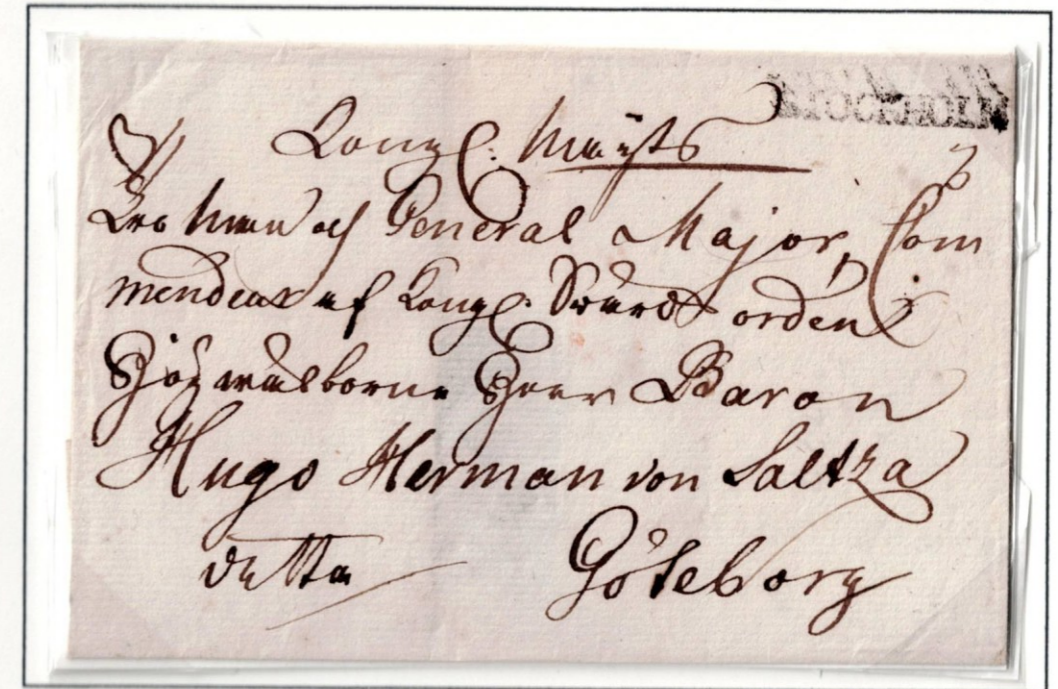 STOCKHOLM
Kongl: Maÿts
Tro Man och General Major, Com
mendeur af Kongl: Swärds orden
Högwälborne Herr Baron
Hugo Herman von Saltza
detta Göteborg